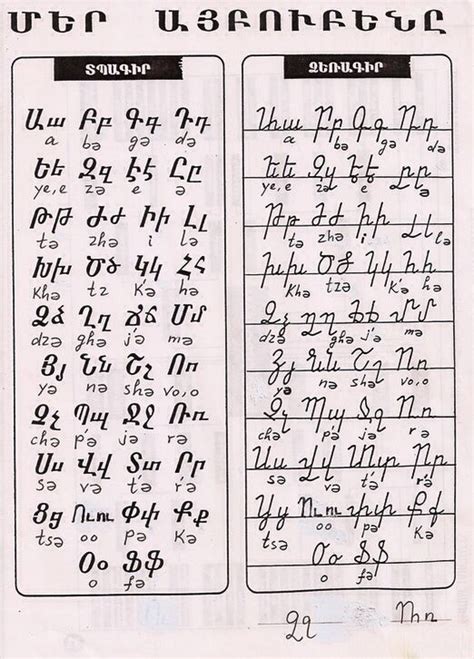 ՄԵՐ ԱՅԲՈՒԲԵՆԸ
ՏՊԱԳԻՐ
Աա Բբ Գգ Դդ
a bə gə də
Եե Զզ Էէ Ըը
ye,e zə e ə
Թթ Ժժ Իի Լլ
tə zhə i lə
Խխ Ծծ Կկ Հհ
khə tz k'ə hə
Ձձ Ղղ Ճճ Մմ
dzə ghə j'ə mə
Յյ Նն Շշ Ոո
yə nə shə vo,o
Չչ Պպ Ջջ Ռռ
chə p'ə jə rə
Սս Վվ Տտ Րր
sə və t'ə rə
Ցց Ուու Փփ Քք
tsə oo pə Kə
Օօ Ֆֆ
o fə
ՁԵՌԱԳԻՐ
Աա Բբ Գգ Դդ
a bə gə də
Եե Զզ Էէ Ըը
ye,e zə e ə
Թթ Ժժ Իի Լլ
tə zhə i lə
Խխ Ծծ Կկ Հհ
Khə tzə K'ə hə
Ձձ Ղղ Ճճ Մմ
dzə ghə j'ə mə
Յյ Նն Շշ Ոո
yə nə shə vo,o
Չչ Պպ Ջջ Ռռ
chə p'ə jə rə
Սս Վվ Տտ Րր
sə və t'ə rə
Ցց Ուու Փփ Քք
tsə oo pə Kə
Օօ Ֆֆ
o fə